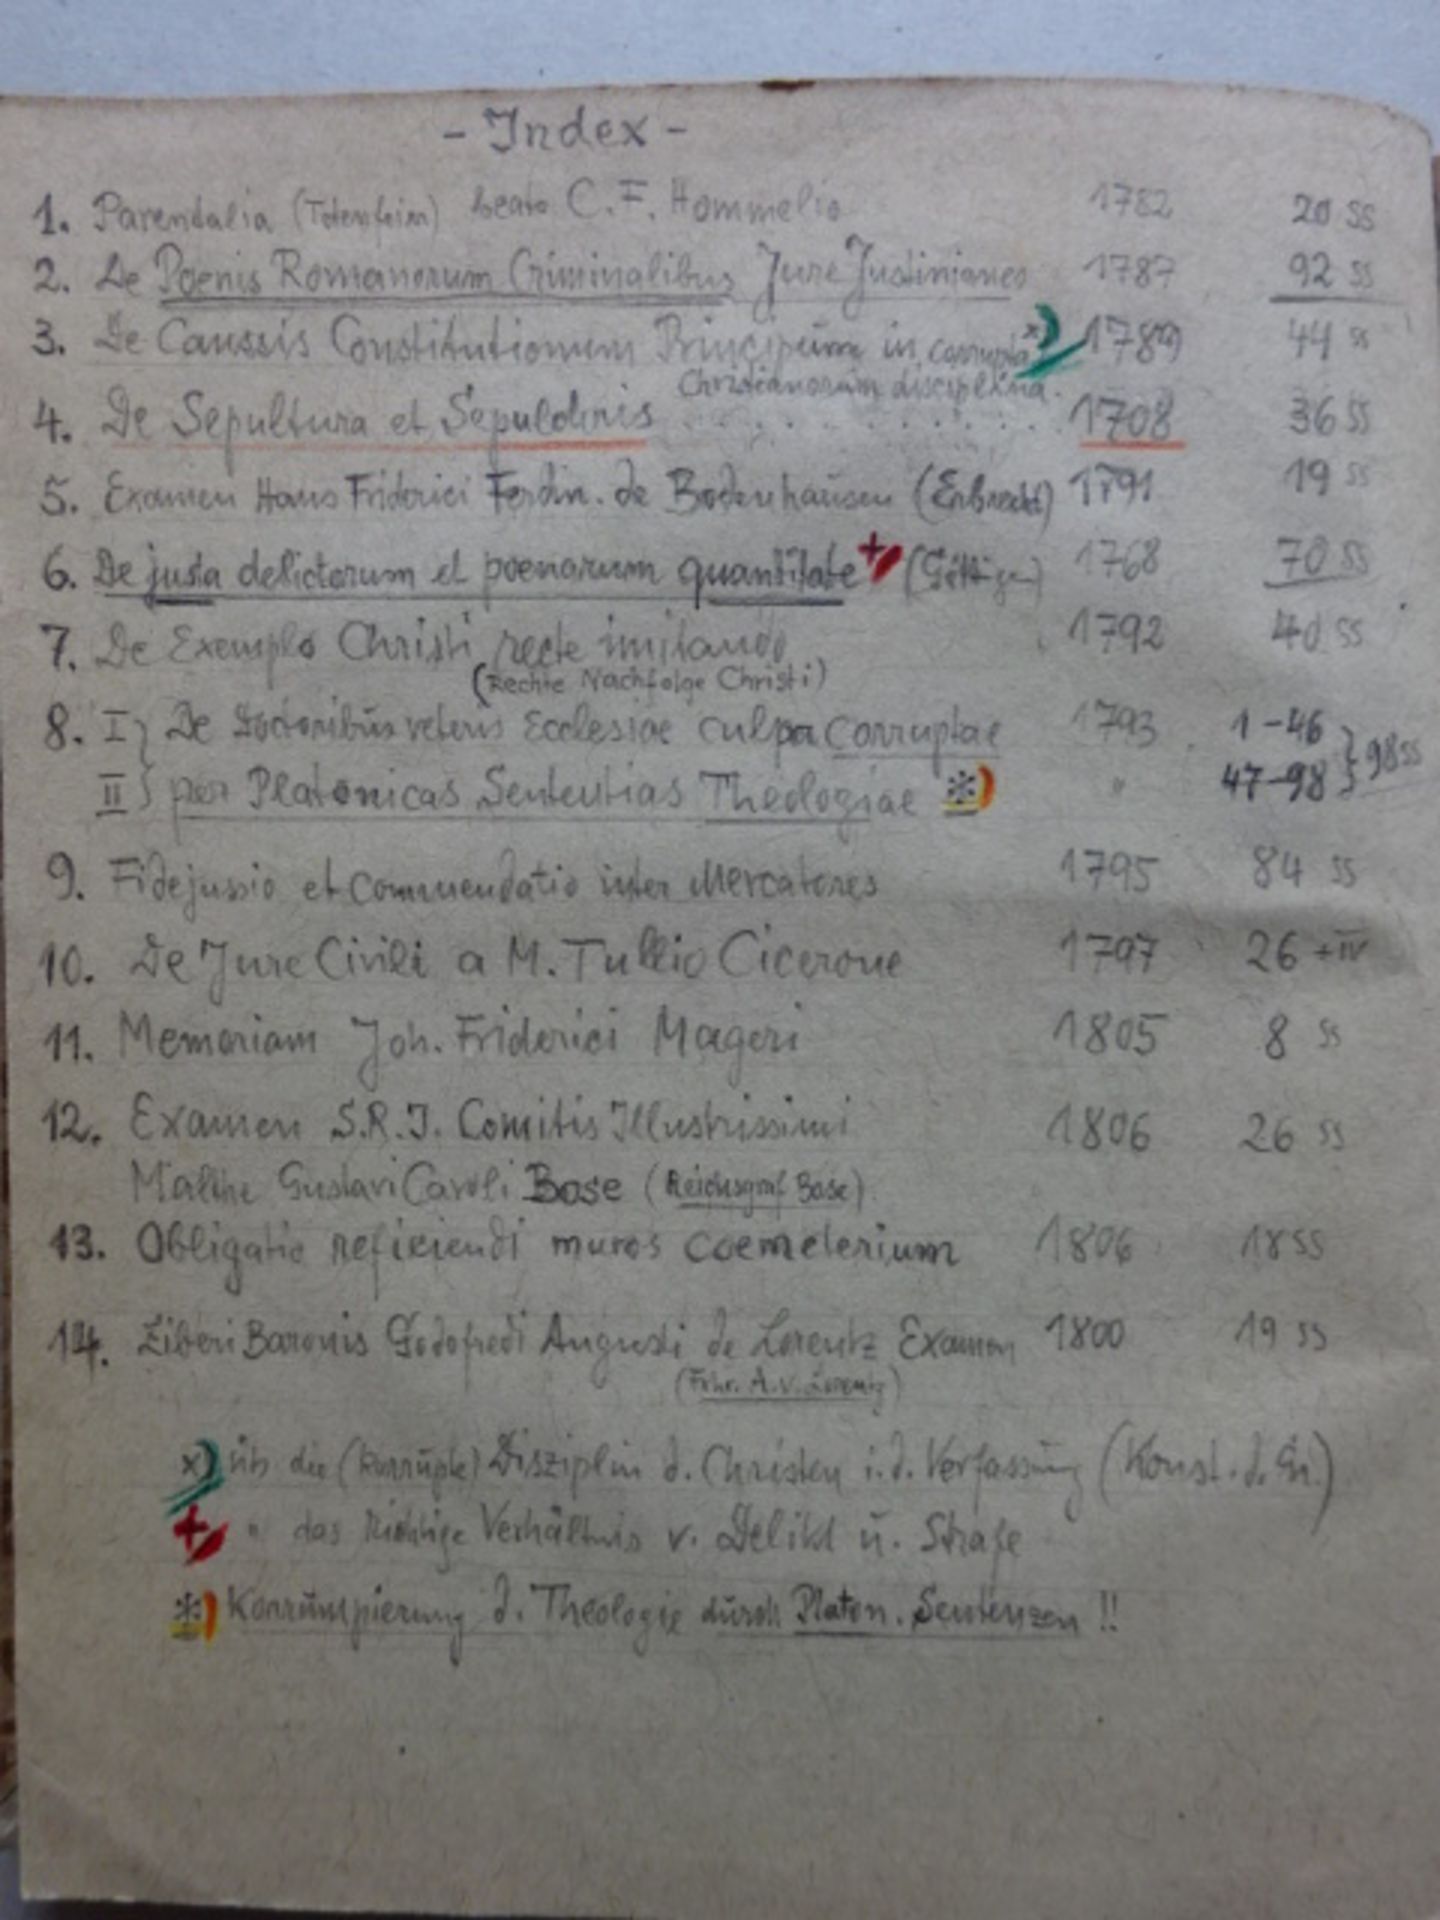 - Index -
1. Parentalia (Totenfeier) beato C. F. Hommelio 1782 20 SS
2. De Poenis Romanorum Criminalibus Jure Justinianeo 1787 92 SS
3. De Caussis Constitutionum Principum in corrupta x) 1789 44 SS
Christianorum disciplina.
4. De Sepultura et Sepulchris . . . . . . . . . . 1708 36 SS
5. Examen Hans Friderici Ferdin. de Bodenhausen (Erbrecht) 1791 19 SS
6. De justa delictorum et poenarum quantitate + (Göttingen) 1768 70 SS
7. De Exemplo Christi recte imitando 1792 40 SS
(Rechte Nachfolge Christi)
8. I} De Doctoribus veteris Ecclesiae culpa corruptae 1793 1-46
II} per Platonicas Sententias Theologiae *) " 47-98 } 98 SS
9. Fidejussio et commendatio inter Mercatores 1795 84 SS
10. De Jure Civili a M. Tullio Cicerone 1797 26 + IV
11. Memoriam Joh. Friderici Mageri 1805 8 SS
12. Examen S.R.J. Comitis Illustrissimi 1806 26 SS
Malthe Gustavi Caroli Bose (Reichsgraf Bose)
13. Obligatio reficiendi muros coemeterium 1806 18 SS
14. Liberi Baronis Godofredi Augusti de Lorentz Examen 1800 19 SS
(Frhr. A. v. Lorentz)
x) üb die (korrupte) Disziplin d. Christen i. d. Verfassung (Konst. d. Gr.)
+ " das Richtige Verhältnis v. Delikt u. Strafe
*) Korrumpierung d. Theologie durch Platon. Sentenzen !!